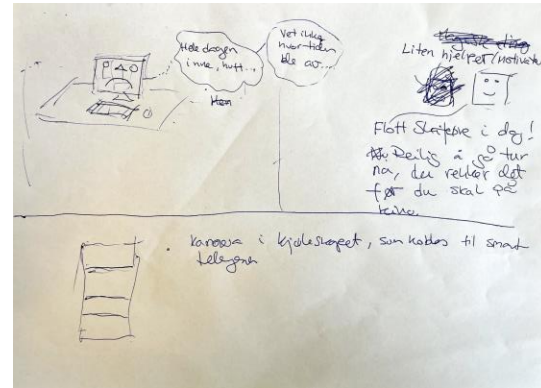 Hele dagen
inne, huff...
Vet ikke
hvor tiden
ble av...
Liten hjelper/motivator
Flott skiføre i dag!
Deilig å gå tur
nå, du rekker det
før du skal på
kino.
Kamera i kjøleskapet, som kobles til smart
telefonen